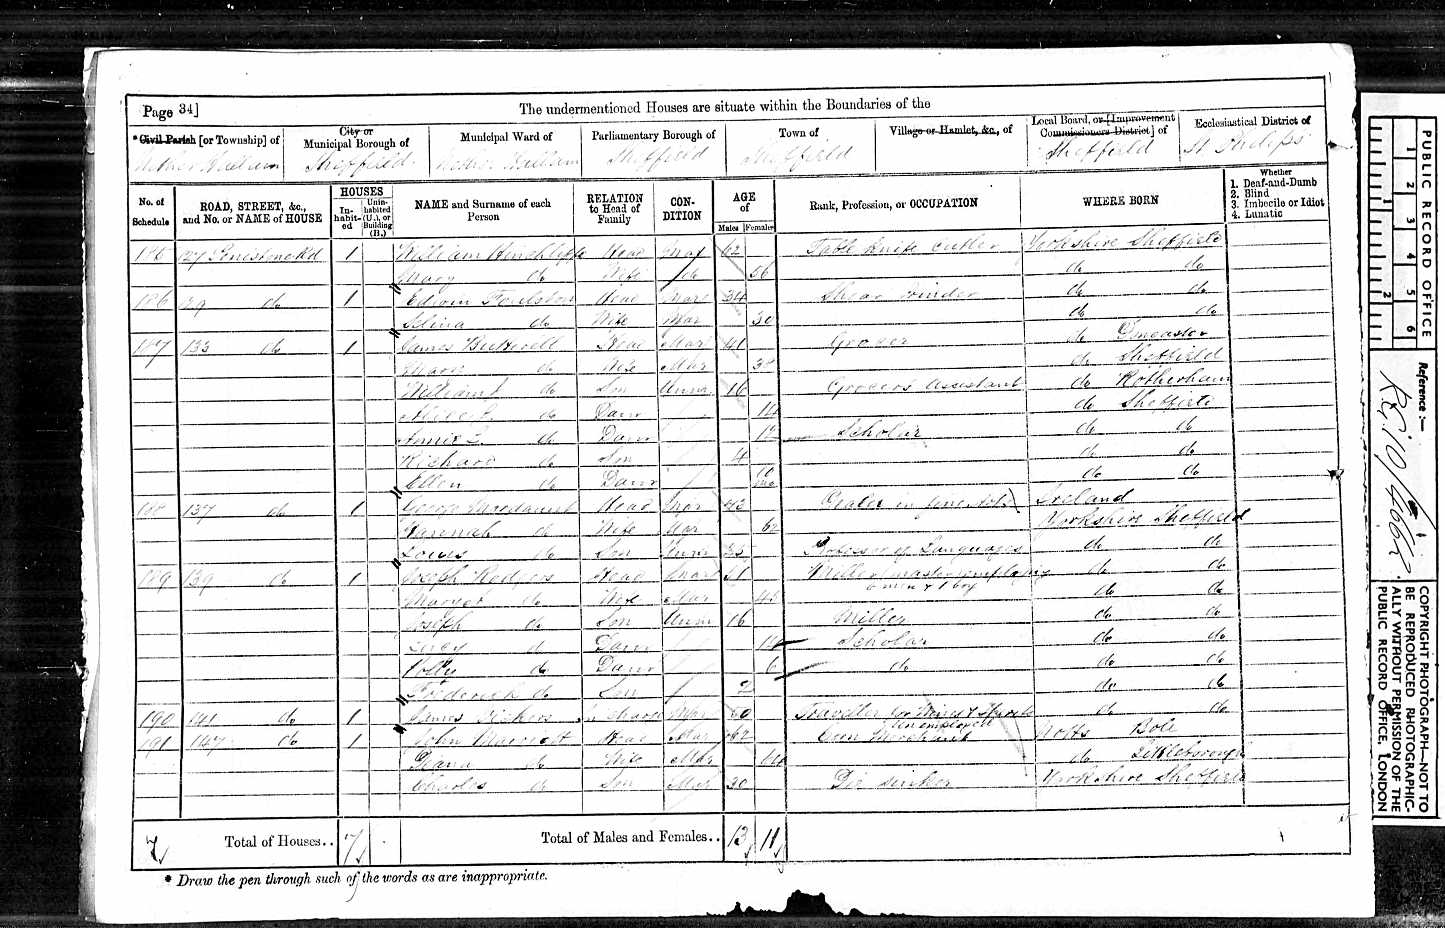 Page 34]
The undermentioned Houses are situate within the Boundaries of the
* Civil Parish [or Township] of
City or Municipal Borough of
Municipal Ward of
Parliamentary Borough of
Town of
Village or Hamlet, &c., of
Local Board, or [Improvement Commissioners District] of
Ecclesiastical District of
Nether Hallam Sheffield Nether Hallam Sheffield Sheffield Sheffield St Philips
No. of Schedule
ROAD, STREET, &c., and No. or NAME of HOUSE
HOUSES
In-habit-ed
Unin-habited (U.), or Building (B.)
NAME and Surname of each Person
RELATION to Head of Family
CON-DITION
AGE of
Males Females
Rank, Profession, or OCCUPATION
WHERE BORN
Whether
1. Deaf-and-Dumb
2. Blind
3. Imbecile or Idiot
4. Lunatic
127 Penistone Rd 1 William Hinchliffe Head Mar 62 Table Knife Cutler Yorkshire Sheffield
Mary do Wife do 56 do do
186 129 do 1 Edwin Head Mar 34 do do
Selina do Wife Mar 30 do do
187 133 do 1 James Head Mar 41 Grocer do Doncaster
do Wife Mar do Sheffield
William do Son Unm 16 Grocers Assistant do Rotherham
do Daur 14 do Sheffield
Annie L do Daur 12 Scholar do do
Richard do Son 4 do do
Ellen do Daur 10 mo do do
188 137 do 1 George Head Mar Dealer in Ireland
Hannah do Wife Mar 62 Yorkshire Sheffield
Louis do Son Unm Professor of Languages do do
189 139 do 1 Joseph Rodgers Head Mar 51 Miller master employing do do
men & 1 boy
do Wife Mar do do
Joseph do Son Unm 16 Miller do do
Lucy do Daur 14 Scholar do do
Polly do Daur 6 do do do
Frederick do Son 2 do do
190 141 do 1 James 60 Traveller for Wines & Spirits do do
Unemployed
191 147 do 1 John Marriott Head Mar 62 Corn Merchant Notts Bole
do Wife Mar 64 do Littleborough
Charles do Son Mar 30 Die sinker Yorkshire Sheffield
7 Total of Houses.. 7 Total of Males and Females.. 13 11
* Draw the pen through such of the words as are inappropriate.
PUBLIC RECORD OFFICE
1 2 3 4 5 6
1 2
Reference :—
RG 10/
COPYRIGHT PHOTOGRAPH—NOT TO BE REPRODUCED PHOTOGRAPHIC-ALLY WITHOUT PERMISSION OF THE PUBLIC RECORD OFFICE, LONDON